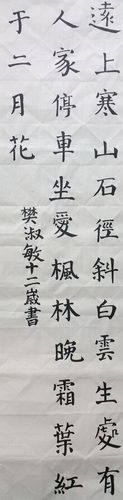 遠上寒山石徑斜白雲生處有
人家停車坐愛楓林晚霜葉紅
于二月花
樊淑敏十二歲書